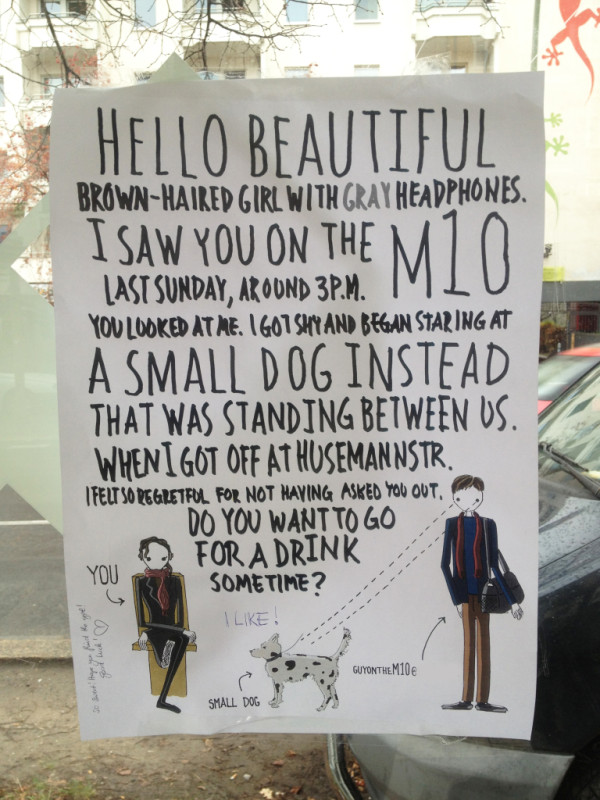 HELLO BEAUTIFUL
BROWN-HAIRED GIRL WITH GRAY HEADPHONES.
I SAW YOU ON THE M10
LAST SUNDAY, AROUND 3P.M.
YOU LOOKED AT ME. I GOT SHY AND BEGAN STARING AT
A SMALL DOG INSTEAD
THAT WAS STANDING BETWEEN US.
WHEN I GOT OFF AT HUSEMANNSTR.
I FELT SO REGRETFUL FOR NOT HAVING ASKED YOU OUT.
DO YOU WANT TO GO
FOR A DRINK
SOMETIME?
YOU
I LIKE!
SMALL DOG
GUYONTHEM10@
So sweet! Hope you find the girl!
Good luck! ♡